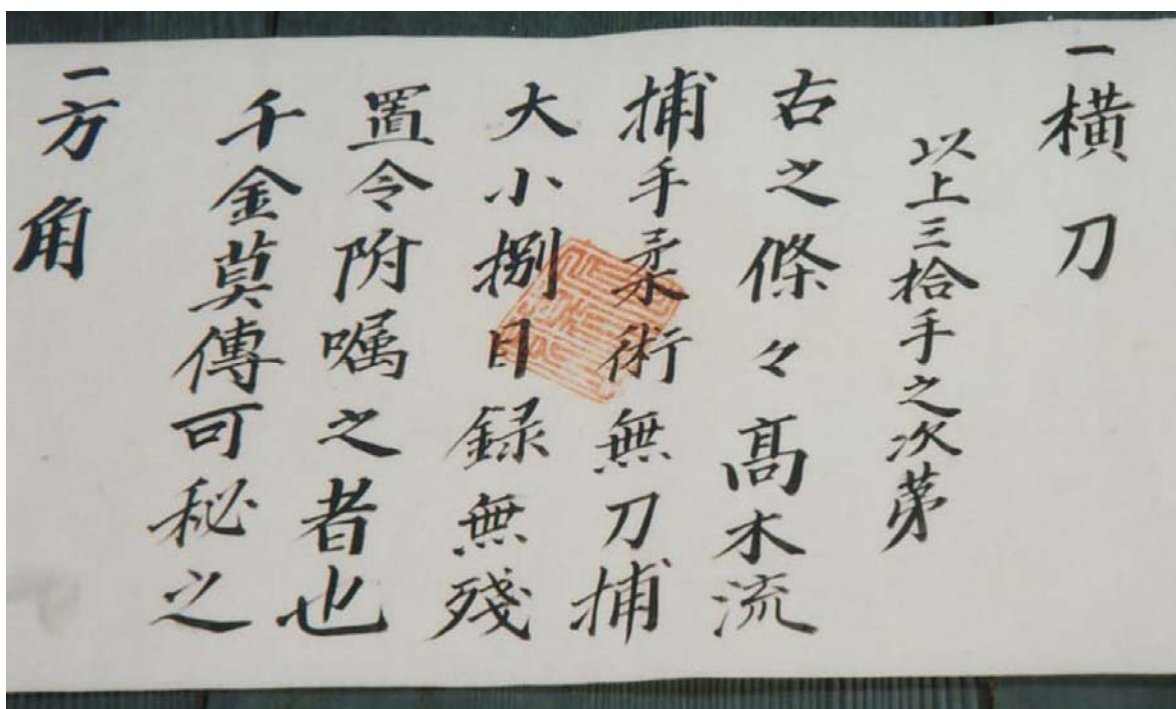 一横刀
以上三拾手之次第
右之條々髙木流
捕手柔術無刀捕
大小捌目録無殘
置令附嘱之者也
千金莫傳可秘之
一方角